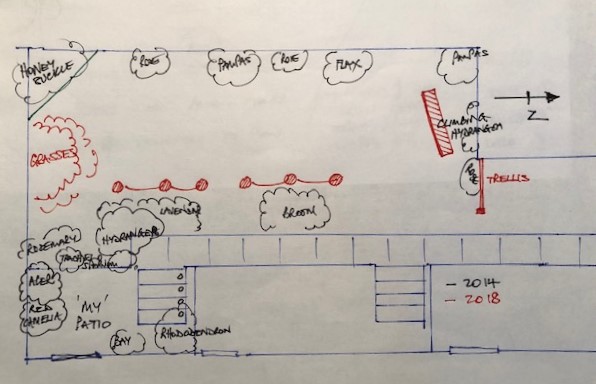 HONEY
SUCKLE
ROSE
PAMPAS
ROSE
FLAX
PAMPAS
CLIMBING
HYDRANGEA
Z
GRASSES
ROSE
TRELLIS
LAVENDER
BROOM
HYDRANGEA
ROSEMARY
ACER
RED
CAMELIA
'MY'
PATIO
BAY
RHODODENDRON
- 2014
- 2018